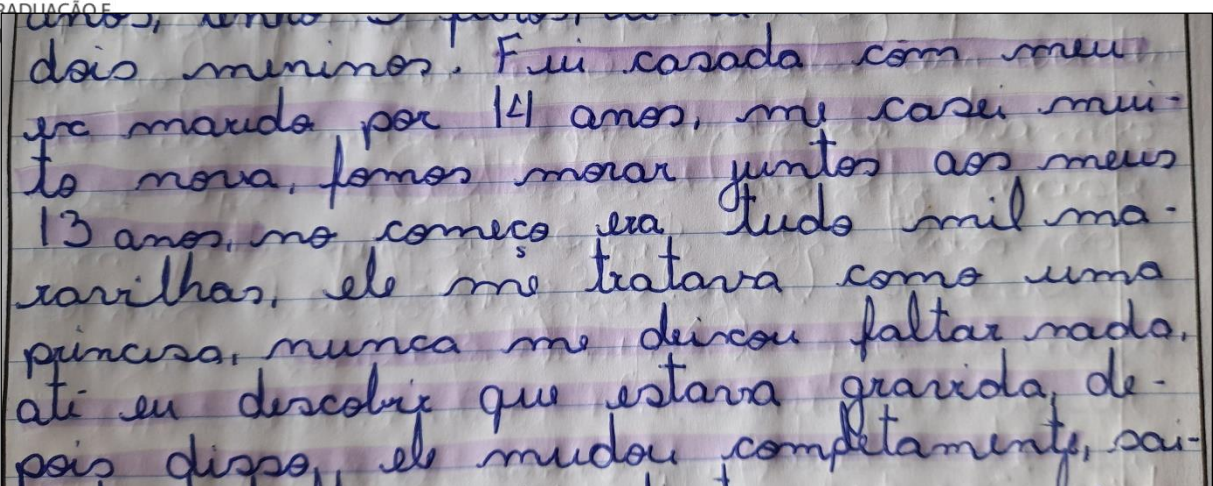 RADUAÇÃO E
anos, tenho 3
dois meninos. Fui casada com meu
ex marido por 14 anos, me casei mui-
to nova, fomos morar juntos aos meus
13 anos, no começo era tudo mil ma-
ravilhas, ele me tratava como uma
princesa, nunca me deixou faltar nada,
até eu descobrir que estava gravida, de-
pois disso, ele mudou completamente, sai-